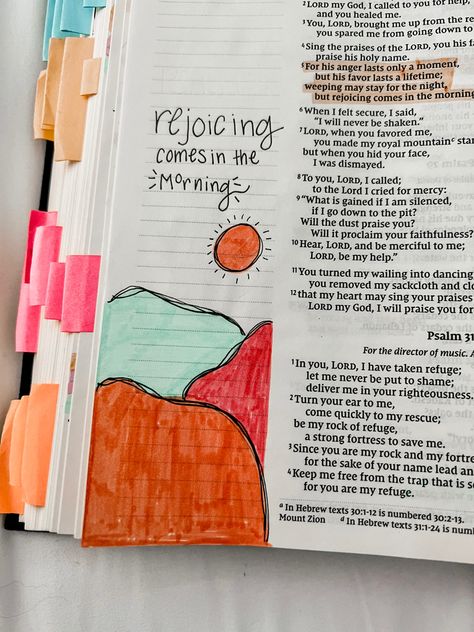 rejoicing
comes in the
Morning
2 LORD my God, I called to you for help,
and you healed me.
3 You, LORD, brought me up from the re
you spared me from going down to
4 Sing the praises of the LORD, you his f
praise his holy name.
5 For his anger lasts only a moment,
but his favor lasts a lifetime;
weeping may stay for the night,
but rejoicing comes in the morning
6 When I felt secure, I said,
“I will never be shaken.”
7 LORD, when you favored me,
you made my royal mountain c stan
but when you hid your face,
I was dismayed.
8 To you, LORD, I called;
to the Lord I cried for mercy:
9 “What is gained if I am silenced,
if I go down to the pit?
Will the dust praise you?
Will it proclaim your faithfulness?
10 Hear, LORD, and be merciful to me;
LORD, be my help.”
11 You turned my wailing into dancing
you removed my sackcloth and cl
12 that my heart may sing your praises
LORD my God, I will praise you for
Psalm 31
For the director of music. A
1 In you, LORD, I have taken refuge;
let me never be put to shame;
deliver me in your righteousness.
2 Turn your ear to me,
come quickly to my rescue;
be my rock of refuge,
a strong fortress to save me.
3 Since you are my rock and my fortre
for the sake of your name lead an
4 Keep me free from the trap that is se
for you are my refuge.
a In Hebrew texts 30:1-12 is numbered 30:2-13.
Mount Zion d In Hebrew texts 31:1-24 is num